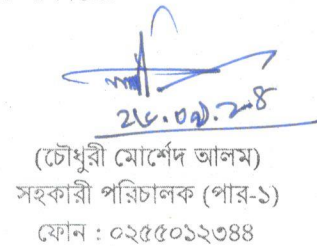 (চৌধুরী মোর্শেদ আলম)
সহকারী পরিচালক (পার-১)
ফোন : ০২৫৫০১২৩৪৪